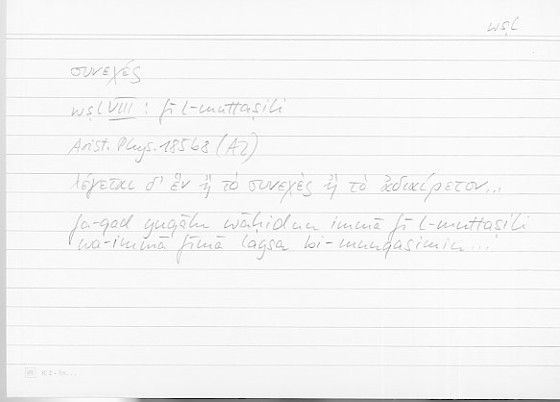 wṣl
συνεχές
wṣl VIII : fī l-muttaṣili
Arist. Phys. 185b8 (A2)
λέγεται δ' ἓν ἢ τὸ συνεχὲς ἢ τὸ ἀδιαίρετον...
fa-qad yuqālu wāḥidun immā fī l-muttaṣili
wa-immā fīmā laysa bi-munqasimin...